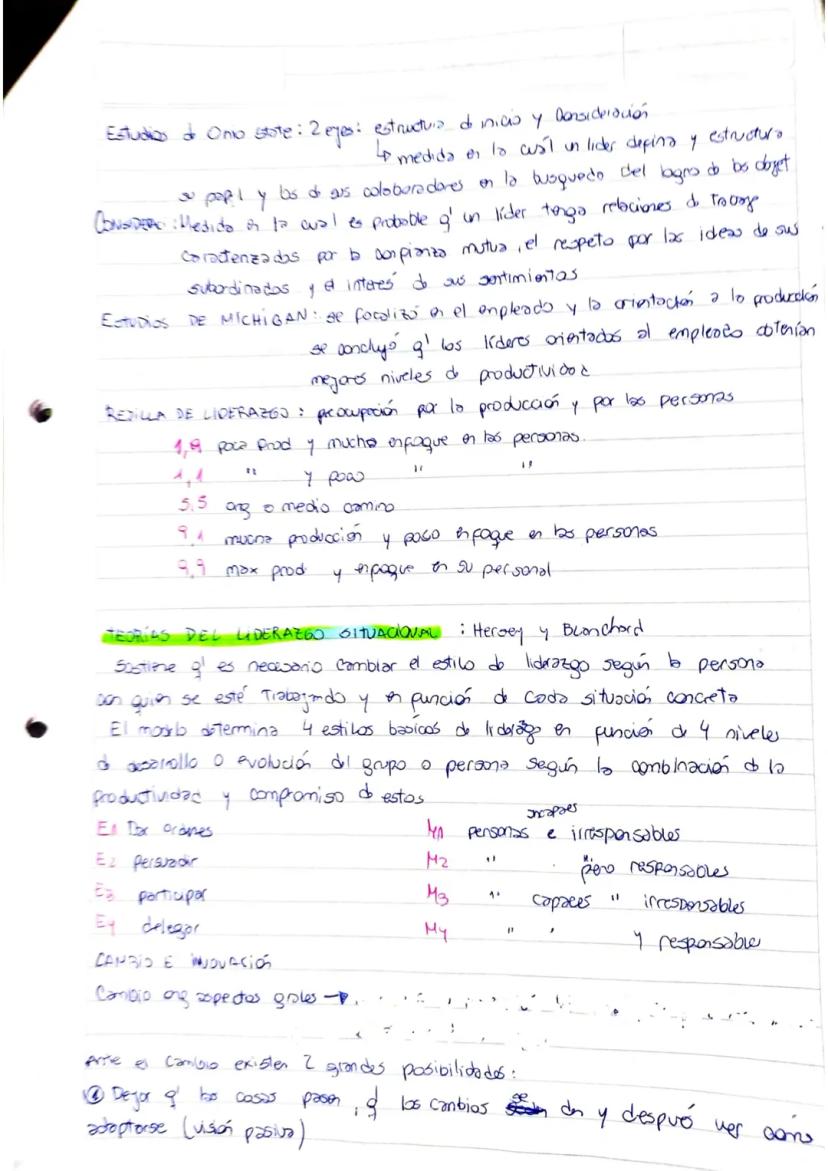 Estudios d Ohio State: 2 ejes: estructura d inicio y Consideración
↳ medida en la cuál un lider defina y estructura
su papel y los de sus colaboradores en la busqueda del logro de los objet
CONSIDERC: Medida en la cual es probable q' un líder tenga relaciones d Trabaje
caracterizadas por la confianza mutua, el respeto por las ideas de sus
subordinados y el interés d sus sentimientos
ESTUDIOS DE MICHIGAN: se focalizó en el empleado y la orientación a la producción
se concluyó q' los líderes orientados al empleado obtenían
mejores niveles d productividad
REJILLA DE LIDERAZGO: preocupación por la producción y por las personas
1,9 poca prod y mucho enfoque en las personas.
1,1 " y poco " "
5.5 org a medio camino
9,1 mucha producción y poco enfoque en las personas
9,9 max prod y enfoque en su personal
TEORÍAS DEL LIDERAZGO SITUACIONAL : Hersey y Blanchard
Sostiene q' es necesario cambiar el estilo de liderazgo según la persona
con quién se esté Trabajando y en función de cada situación concreta
El modelo determina 4 estilos basicos de liderazgo en función de 4 niveles
d desarrollo o evolución del grupo o persona según la combinación d la
productividad y compromiso d estos
E1 Dar ordenes M1 personas incapaes e irresponsables
E2 Persuadir M2 " pero responsables
E3 participar M3 " capaces " irresponsables
E4 delegar M4 " " y responsable
CAMBIO E INNOVACIÓN
Cambio org aspectos grales →
Ante el cambio existen 2 grandes posibilidades:
① Dejar q' las cosas pasen, q' los cambios se den y despué ver cómo
adaptarse (visión pasiva)